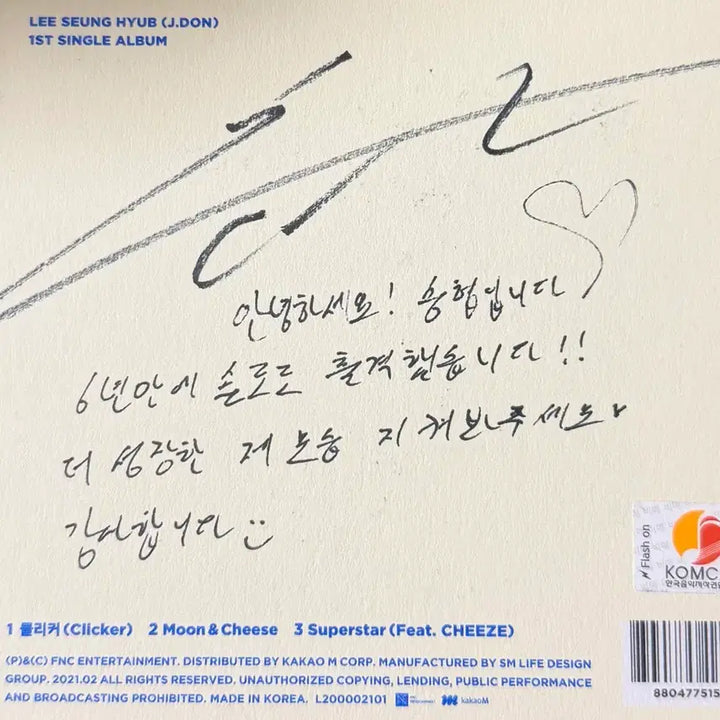 LEE SEUNG HYUB (J.DON)
1ST SINGLE ALBUM
안녕하세요! 승협입니다
6년만에 솔로로 출격했습니다!!
더 성장한 제 모습 지켜봐주세요
감사합니다
Flash on
KOMC
한국음악저작권
1 클리커 (Clicker) 2 Moon & Cheese 3 Superstar (Feat. CHEEZE)
(P)&(C) FNC ENTERTAINMENT. DISTRIBUTED BY KAKAO M CORP. MANUFACTURED BY SM LIFE DESIGN
GROUP. 2021.02 ALL RIGHTS RESERVED. UNAUTHORIZED COPYING, LENDING, PUBLIC PERFORMANCE
AND BROADCASTING PROHIBITED. MADE IN KOREA. L200002101 kakaoM
880477515